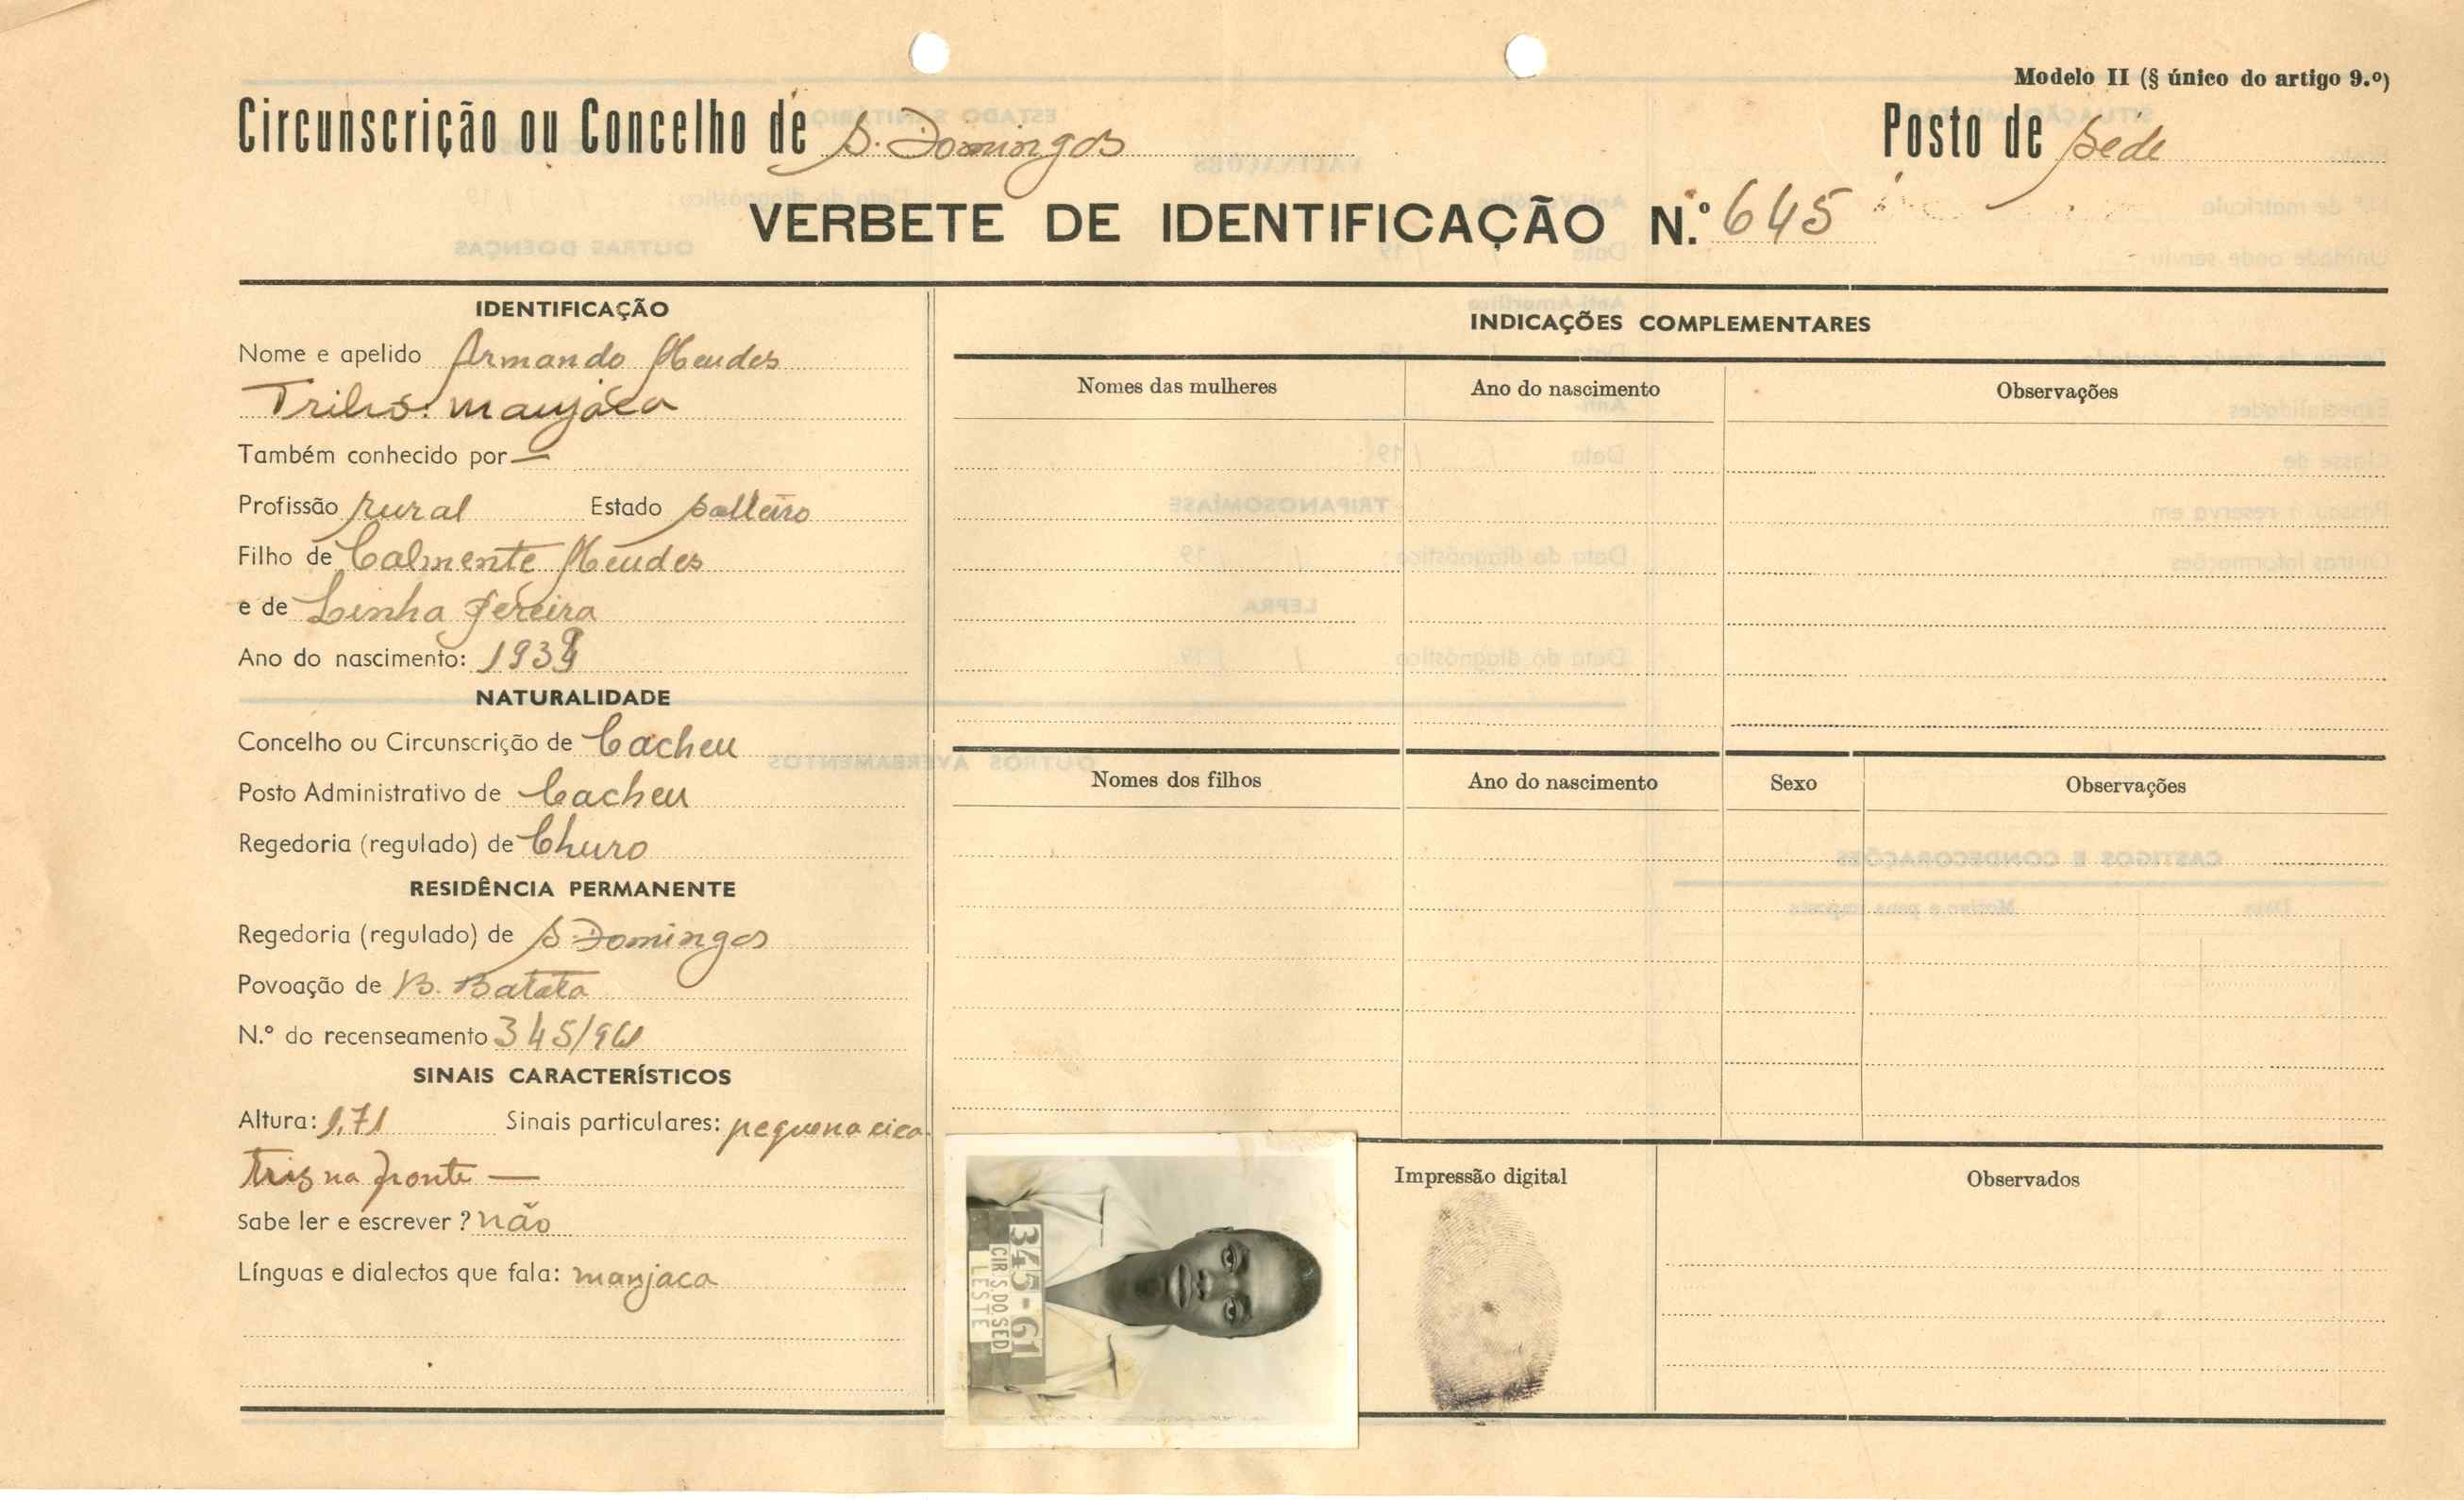 Modelo II (§ único do artigo 9.º)
Circunscrição ou Concelho de S. Domingos Posto de Séde
VERBETE DE IDENTIFICAÇÃO N.º 645
IDENTIFICAÇÃO
Nome e apelido Armando Mendes
manjáca
Também conhecido por —
Profissão rural Estado solteiro
Filho de Calmente Mendes
e de Linha Pereira
Ano do nascimento: 1939
NATURALIDADE
Concelho ou Circunscrição de Cacheu
Posto Administrativo de Cacheu
Regedoria (regulado) de Churo
RESIDÊNCIA PERMANENTE
Regedoria (regulado) de S Domingos
Povoação de B. Batata
N.º do recenseamento 345/961
SINAIS CARACTERÍSTICOS
Altura: 1,71 Sinais particulares: pequena cica
triz na fronte —
Sabe ler e escrever? não
Línguas e dialectos que fala: manjaca
INDICAÇÕES COMPLEMENTARES
Nomes das mulheres Ano do nascimento Observações
Nomes dos filhos Ano do nascimento Sexo Observações
345-61
CIR S DO SED
LESTE
Impressão digital
Observados